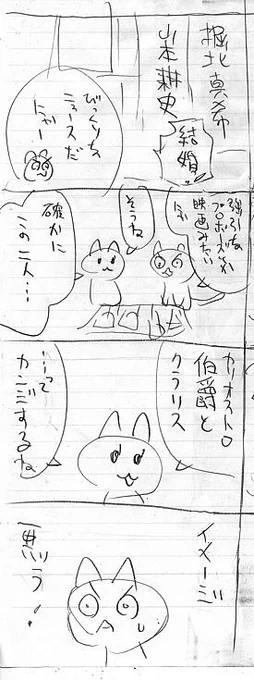 堀北真希
山本耕史
結婚
びっくりな
ニュースだ
にゃー
強引な
プロポーズが
映画みたい
にゃ
そうね
確かに
この二人…
カリオストロ
伯爵と
クラリス
…って
カンジするね
イメージ
悪っ!